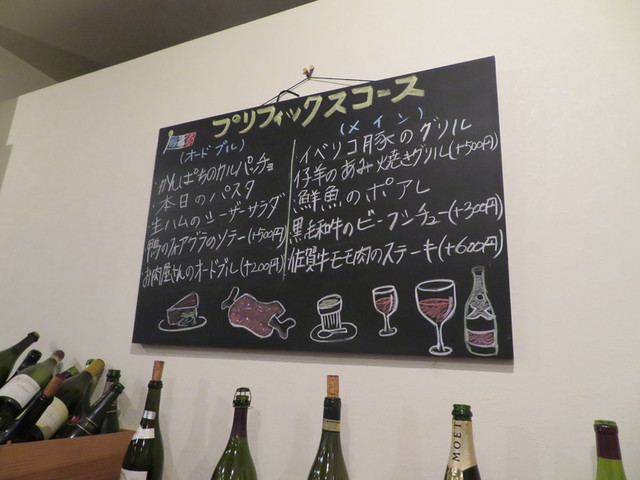 プリフィックスコース
(オードブル)
・かんぱちのカルパッチョ
・本日のパスタ
・生ハムのシーザーサラダ
・鴨のフォアグラのソテー(+500円)
・お肉屋さんのオードブル(+200円)
(メイン)
・イベリコ豚のグリル
・仔羊のあみ焼きグリル(+500円)
・鮮魚のポアレ
・黒毛和牛のビーフシチュー(+300円)
・佐賀牛モモ肉のステーキ(+600円)
MOET